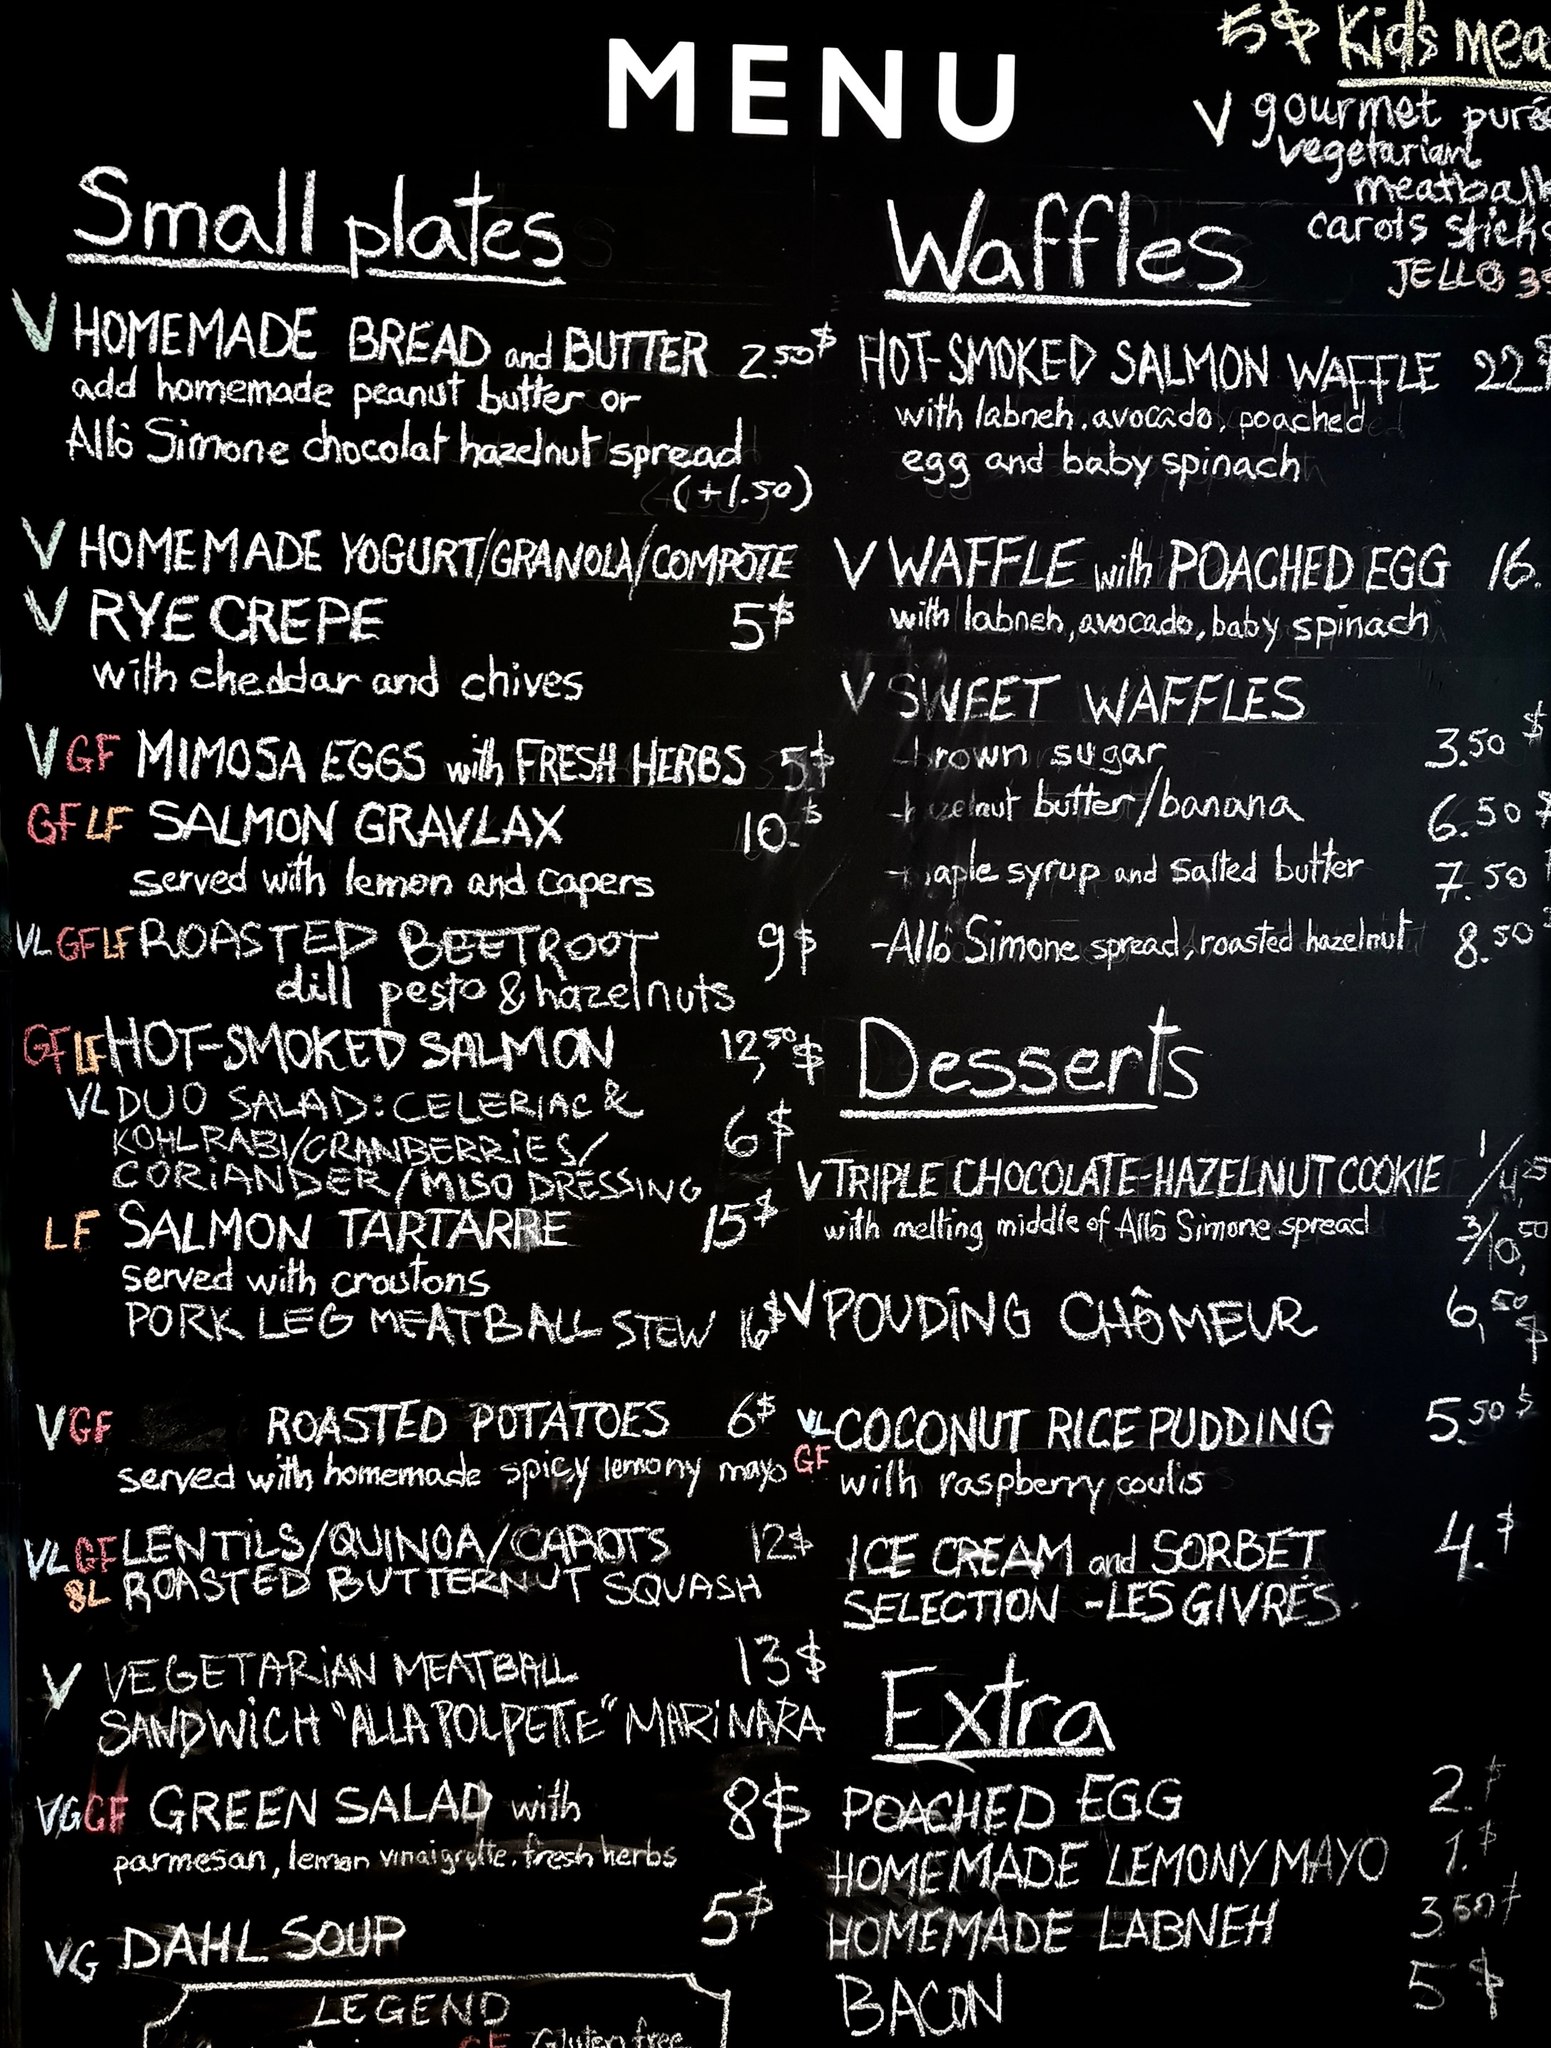 MENU
5$ Kid's mea
V gourmet purée
vegetarian
meatball
carots sticks
JELLO 3$
Small plates
V HOMEMADE BREAD and BUTTER 2.50$
add homemade peanut butter or
Allô Simone chocolat hazelnut spread
(+1.50)
V HOMEMADE YOGURT/GRANOLA/COMPOTE
V RYE CREPE 5$
with cheddar and chives
V GF MIMOSA EGGS with FRESH HERBS 5$
GF LF SALMON GRAVLAX 10.$
served with lemon and capers
VL GF LF ROASTED BEETROOT 9$
dill pesto & hazelnuts
GF LF HOT-SMOKED SALMON 12,50$
VL DUO SALAD: CELERIAC & 6$
KOHLRABI/CRANBERRIES/
CORIANDER/MISO DRESSING
LF SALMON TARTARRE 15$
served with croutons
PORK LEG MEATBALL STEW 16$
V GF ROASTED POTATOES 6$
served with homemade spicy lemony mayo
VL GF LENTILS/QUINOA/CAROTS 12$
8L ROASTED BUTTERNUT SQUASH
V VEGETARIAN MEATBALL 13$
SANDWICH "ALLA POLPETTE" MARINARA
VG GF GREEN SALAD with 8$
parmesan, lemon vinaigrette, fresh herbs
VG DAHL SOUP 5$
LEGEND
GF Gluten free
Waffles
HOT-SMOKED SALMON WAFFLE 22$
with labneh, avocado, poached
egg and baby spinach
V WAFFLE with POACHED EGG 16.
with labneh, avocado, baby spinach
V SWEET WAFFLES
-brown sugar 3.50$
-hazelnut butter/banana 6.50$
-maple syrup and salted butter 7.50$
-Allô Simone spread, roasted hazelnut 8.50$
Desserts
V TRIPLE CHOCOLATE-HAZELNUT COOKIE 1/4,25
with melting middle of Allô Simone spread 3/10,50
V POUDING CHÔMEUR 6,50$
VL COCONUT RICE PUDDING 5.50$
GF with raspberry coulis
ICE CREAM and SORBET 4.$
SELECTION -LES GIVRÉS.
Extra
POACHED EGG 2.$
HOMEMADE LEMONY MAYO 1.$
HOMEMADE LABNEH 3.50$
BACON 5$